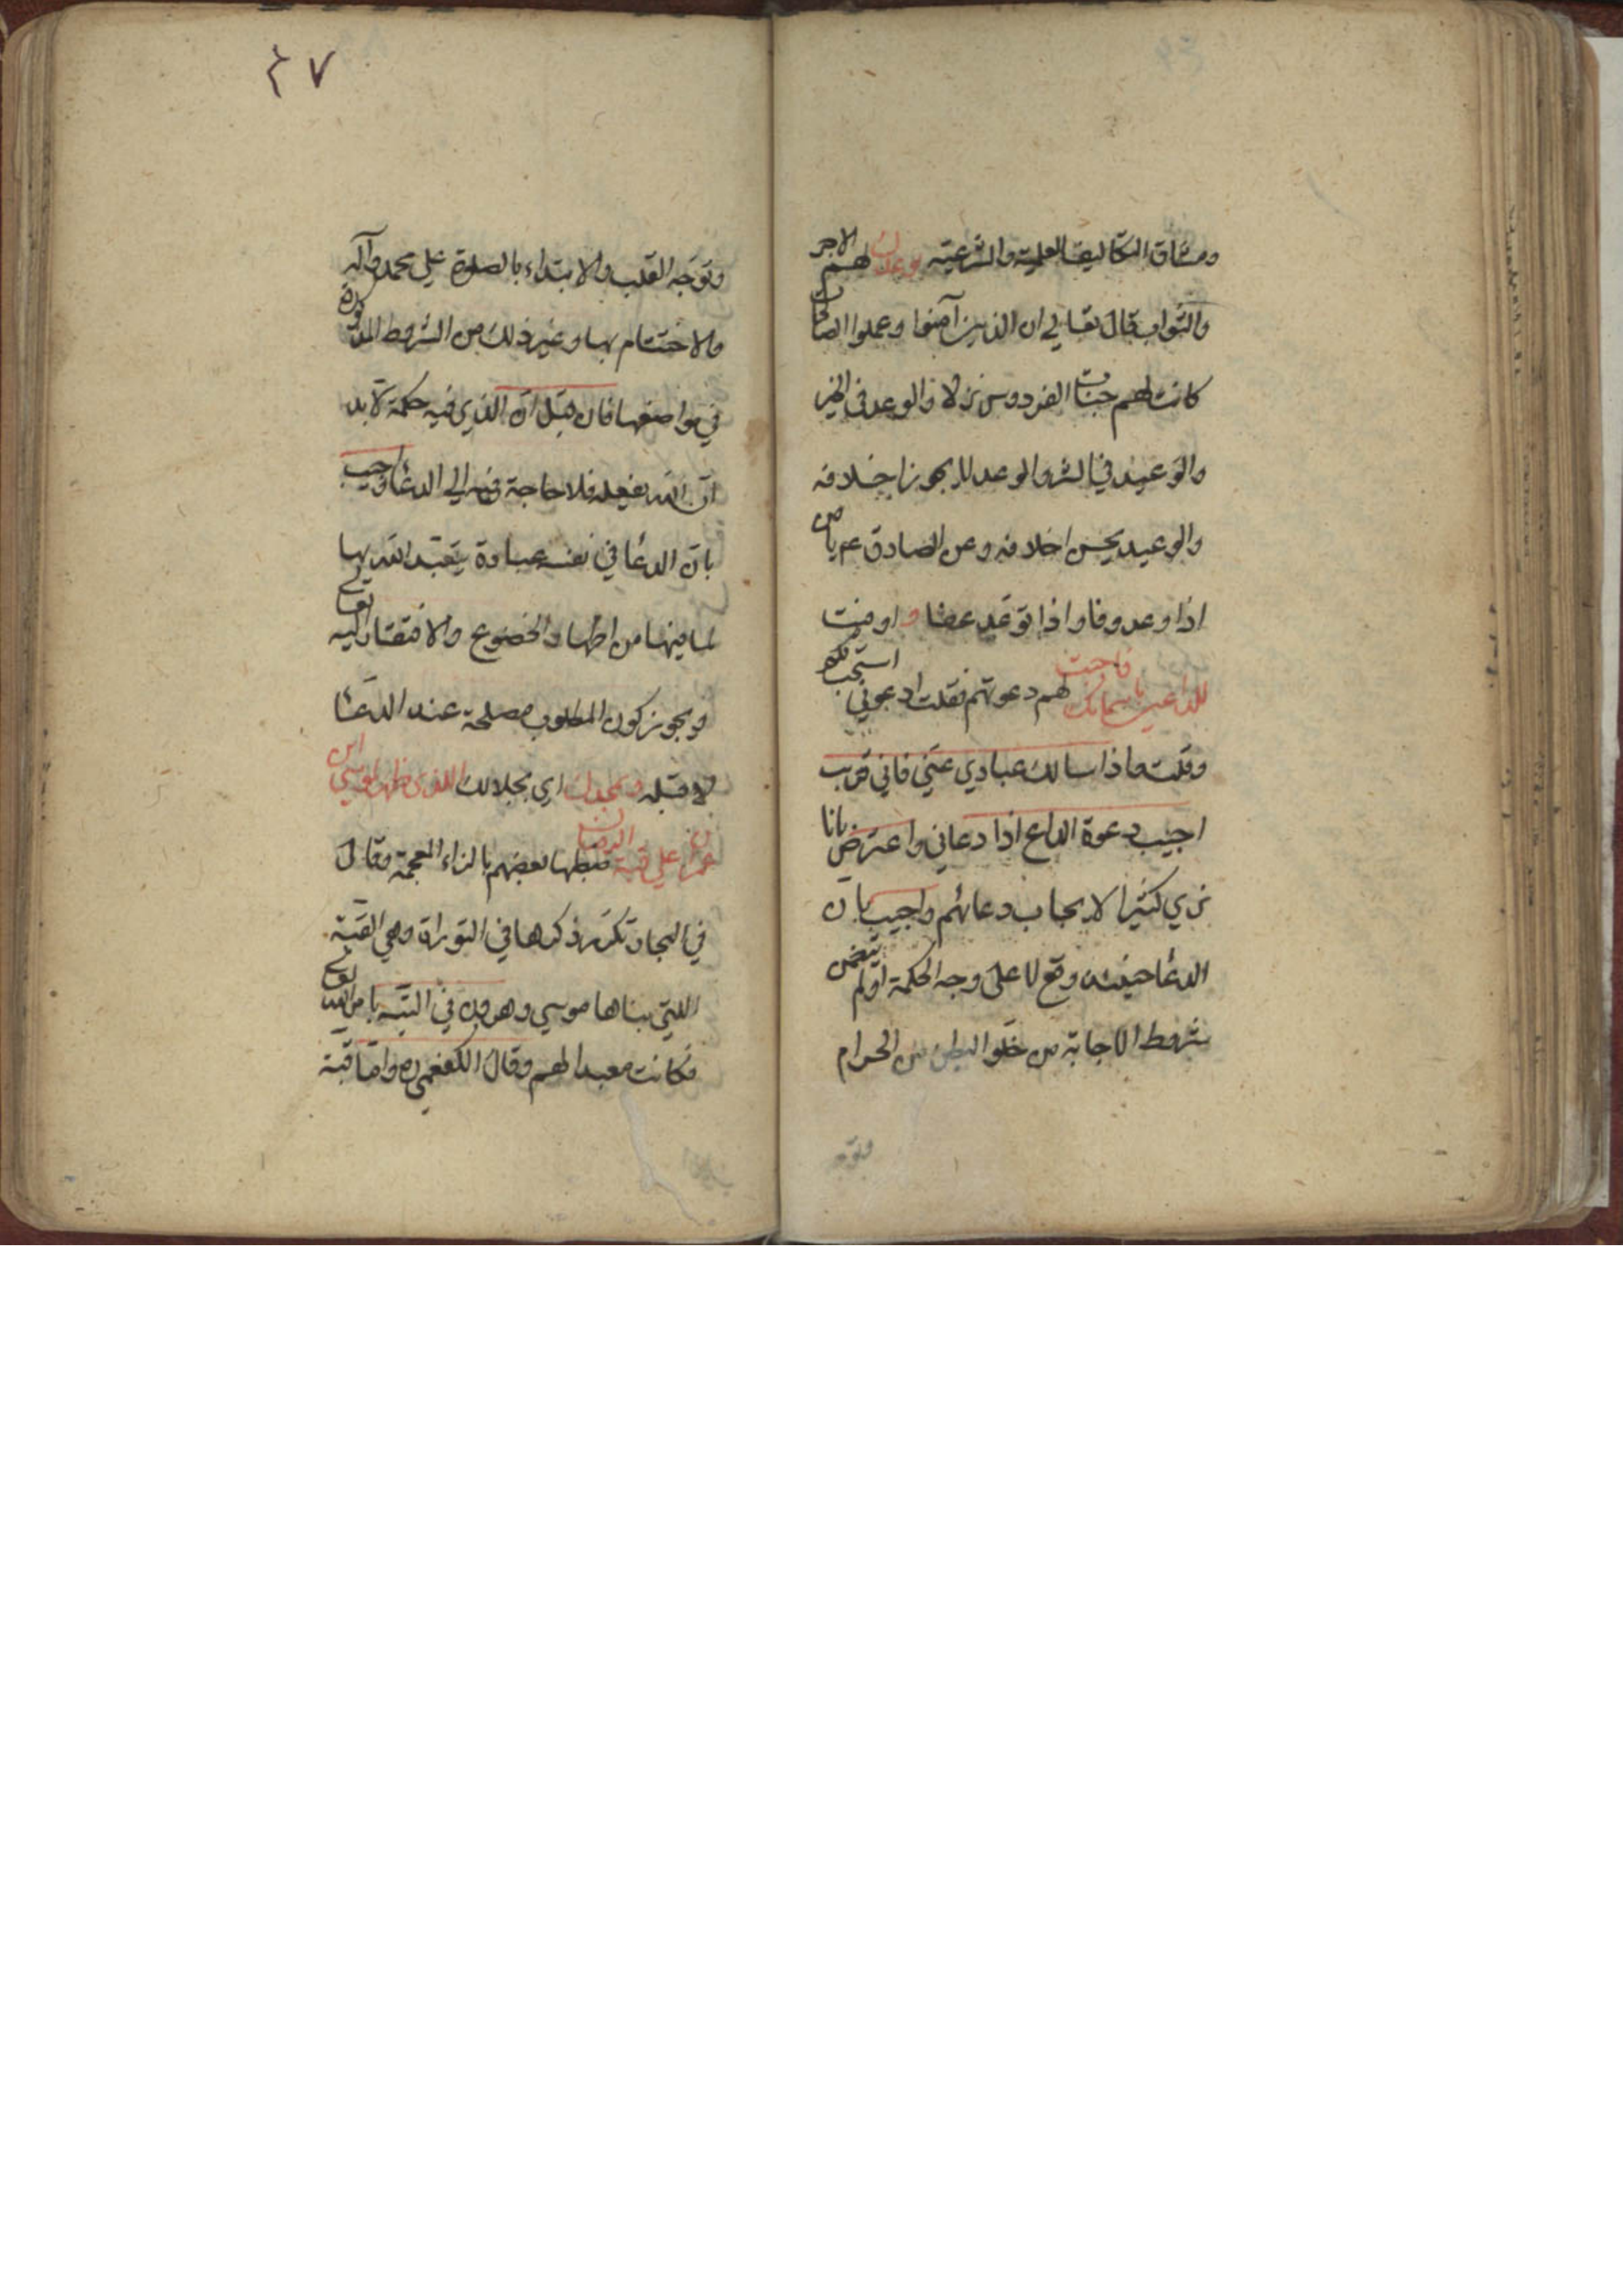 ومشاق التكاليف العلمية والشرعية ووعدك لهم الاجر
والثواب قال تعالي ان الذين آمنوا وعملوا الصالحات
كانت لهم جنات الفردوس نزلا والوعد في الخير
والوعيد في الشر والوعد لا يجوز اخلافه
والوعيد يحسن اخلافه وعن الصادق ع يا من
اذا وعد وفا واذا توعد عفا واوفيت
للداعين باسمائك فاجبت لهم دعوتهم فقلت ادعوني استجب لكم
وقلت واذا سالك عبادي عني فاني قريب
اجيب دعوة الداع اذا دعاني واعترض بانا
نري كثيرا لا يجاب دعائهم واجيب بان
الدعا حينئذ وقع لا علي وجه الحكمة او لم يتضمن
شروط الاجابة من خلو البطن من الحرام
وتوجه
٤٧
وتوجه القلب والابتداء بالصلوة علي محمد وآله
والاختتام بها وغير ذلك من الشروط المذكورة
في مواضعها فان قيل ان الذي فيه حكمة لا بد
ان الله يفعله فلا حاجة فيه الي الدعا واجيب
بان الدعا في نفسه عبادة يتعبد الله بها
لما فيها من اظهار الخضوع والافتقار اليه تعالي
ويجوز كون المطلوب مصلحة عند الدعا
لا قبله وبمجدك اي بجلالك الذي ظهر لموسي ابن
عمران علي قبة الرمان ضبطها بعضهم بالزاء المعجمة وقال
في البحار تكرر ذكرها في التوراة وهي القبة
اللتي بناها موسي وهرون في التيه بامر الله تعالي
فكانت معبدا لهم وقال الكفعمي ره واما قبة